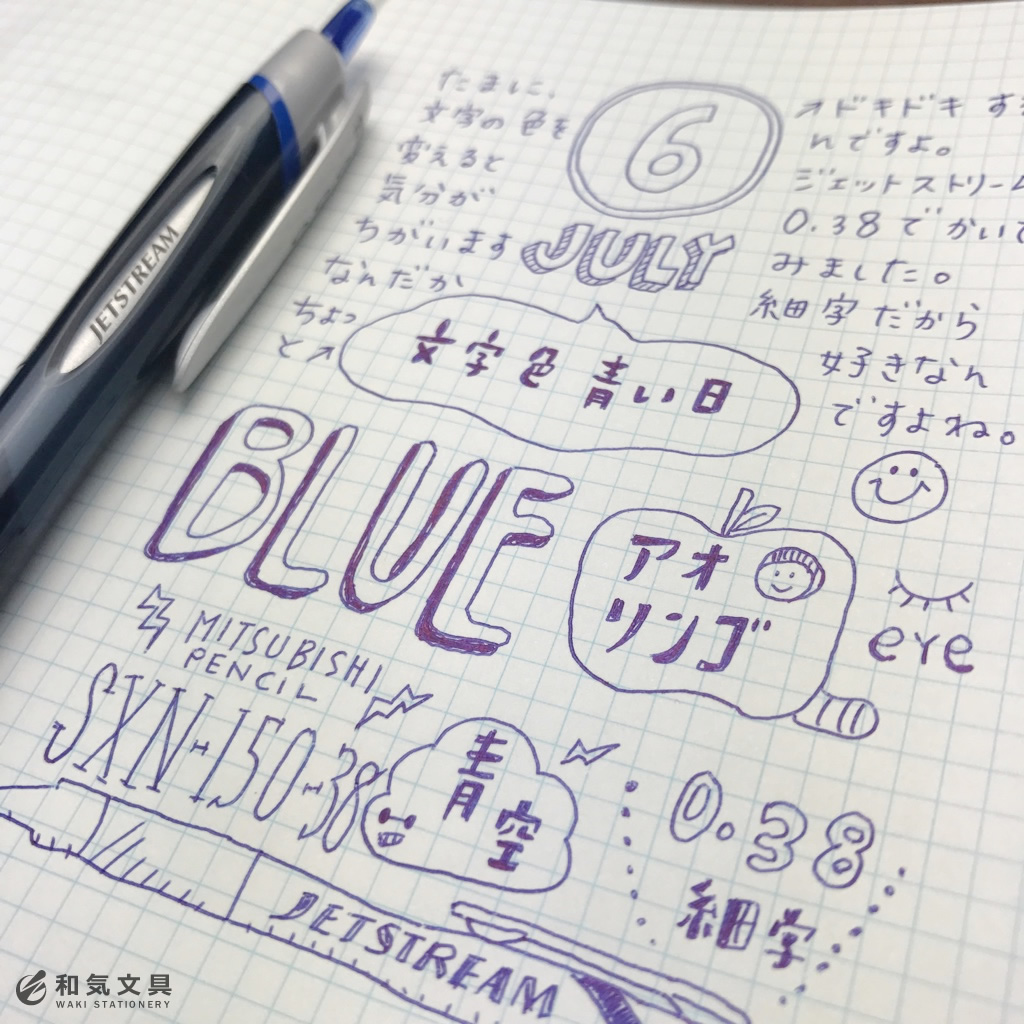 JETSTREAM
たまに、
文字の色を
変えると
気分が
ちがいます
なんだか
ちょっ
と↗
6
JULY
↗ドキドキ
んですよ。
ジェットストリーム
0.38でかいて
みました。
細字だから
好きなん
ですよね。
文字色 青い日
BLUE
アオ
リンゴ
eye
MITSUBISHI
PENCIL
SXN-150-38
青
空
0.38
細字
JETSTREAM
和気文具
WAKI STATIONERY